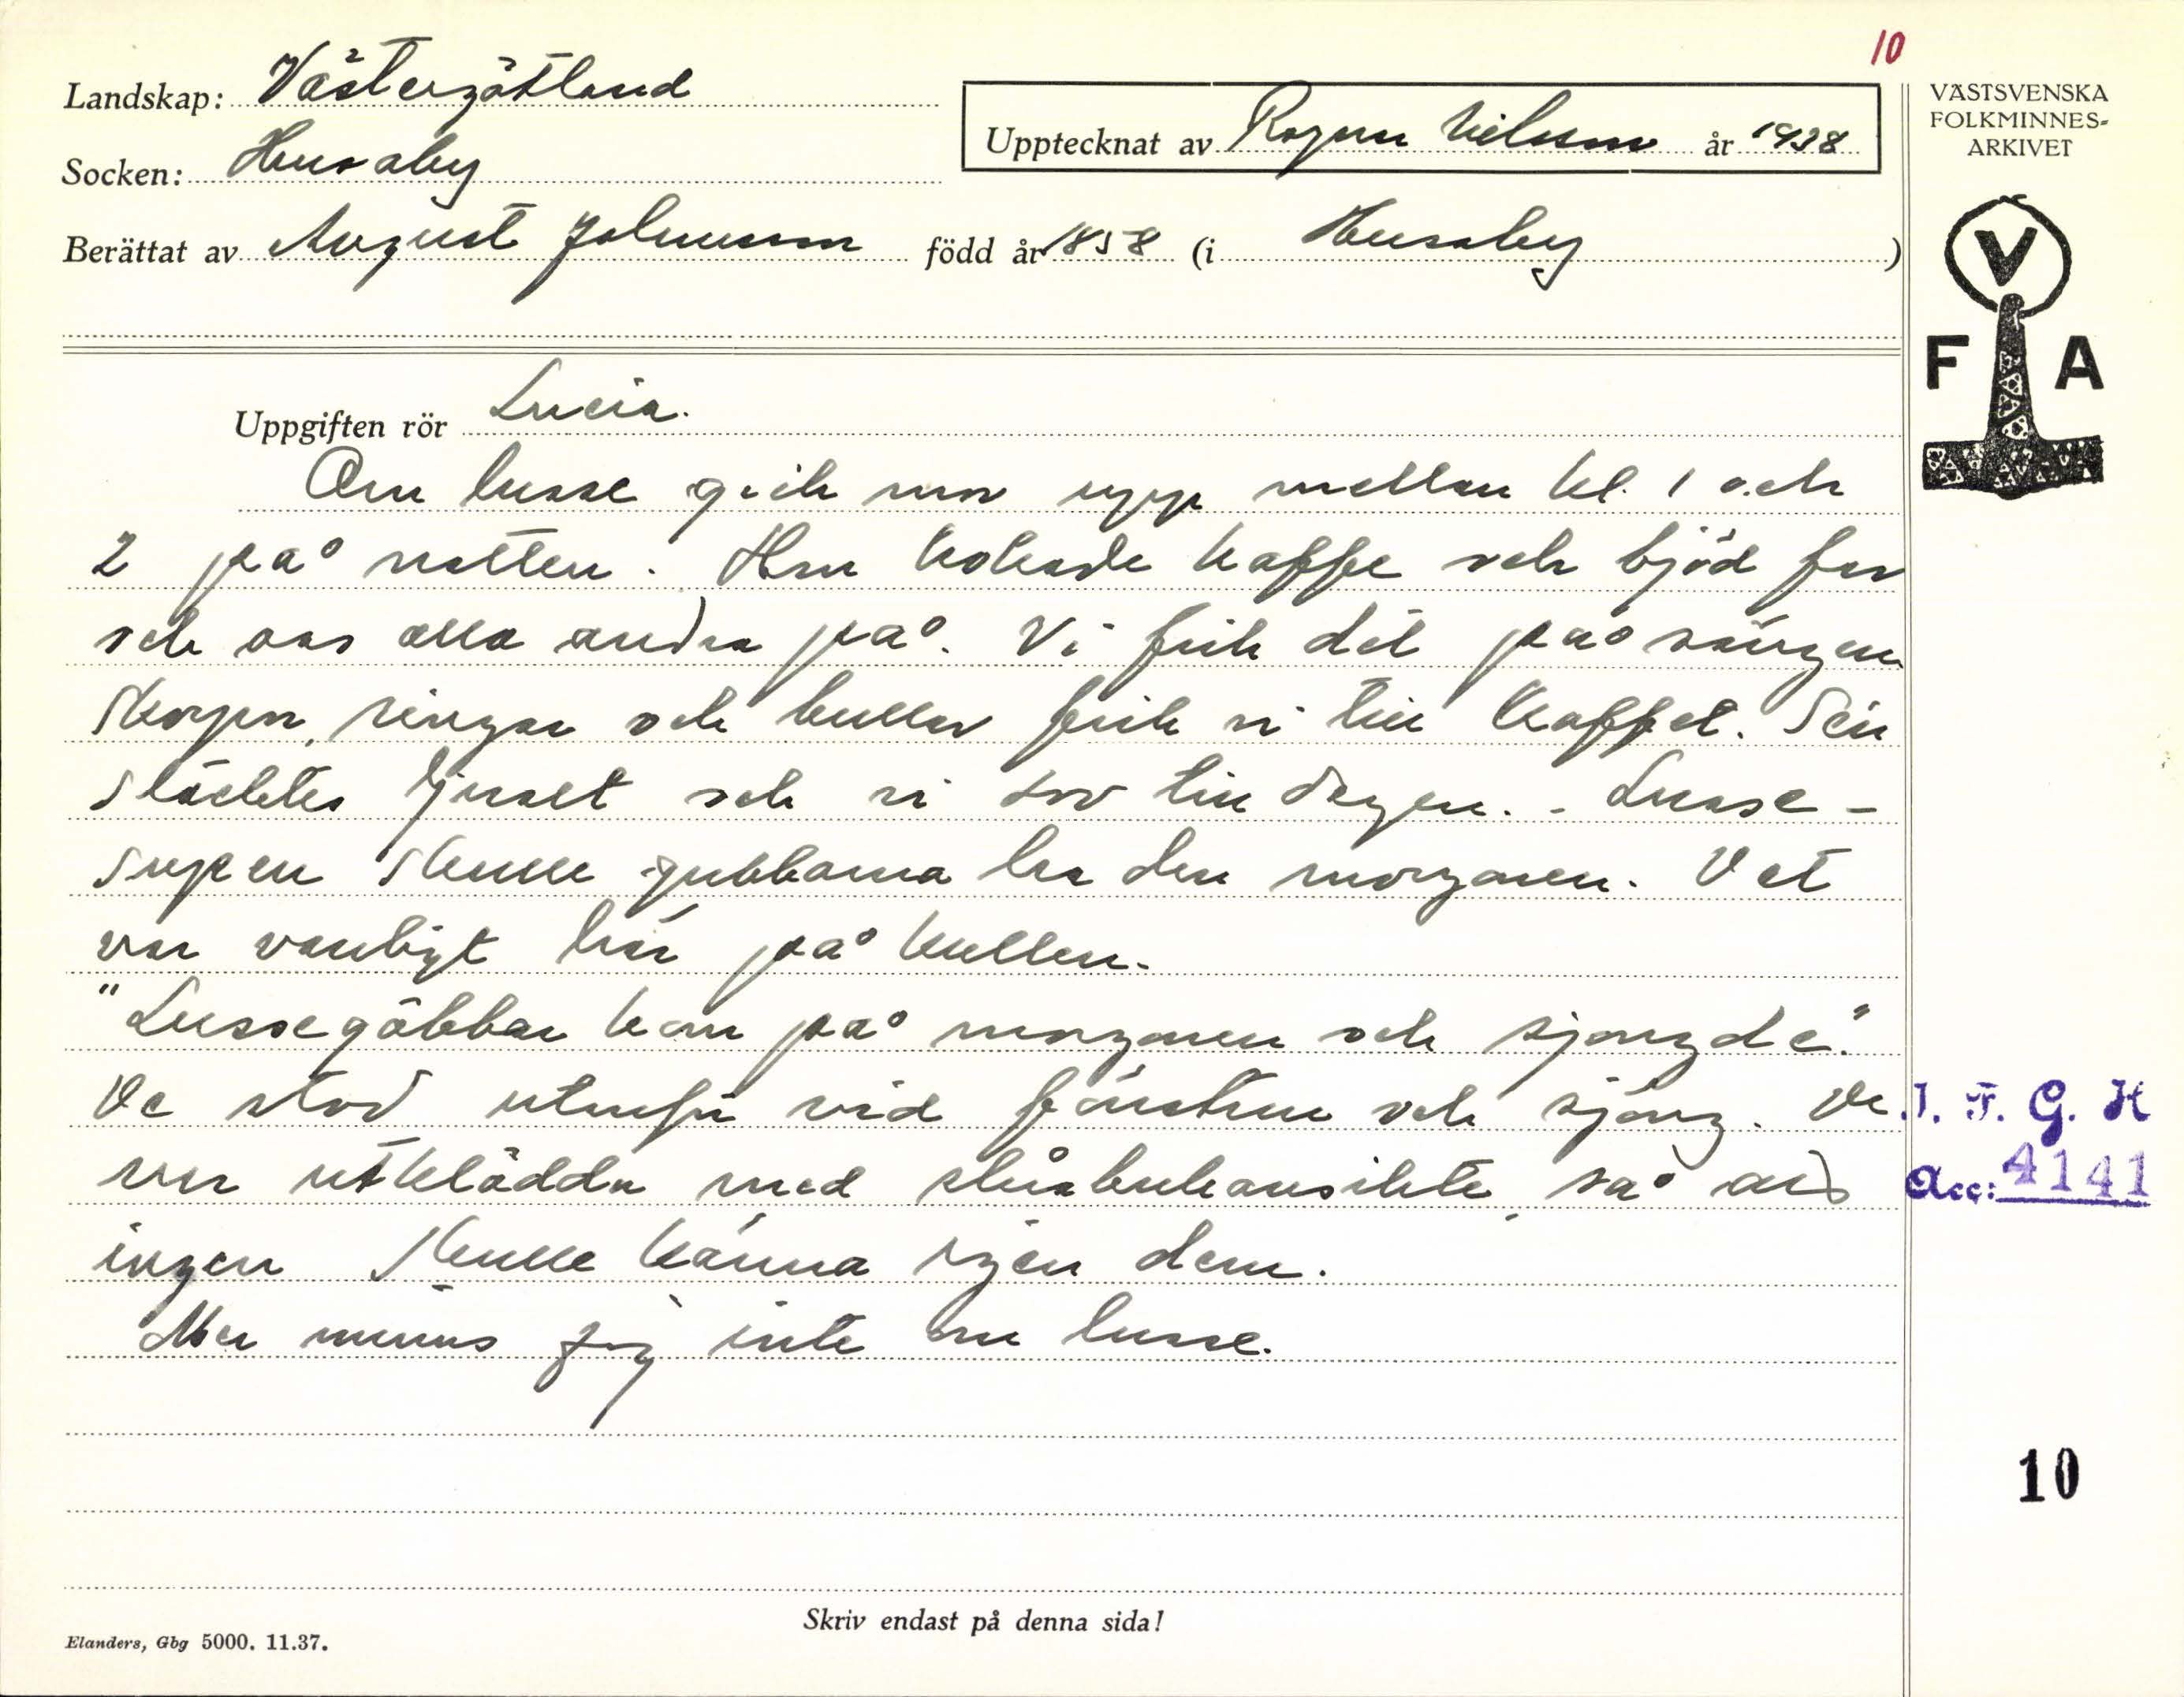 10
Landskap: Västergötland
Upptecknat av Ragnar Nilsson år 1938
VÄSTSVENSKA
FOLKMINNES-
ARKIVET
Socken: Husaby
Berättat av August Johansson född år 1858 (i Husaby)
V
F A
Uppgiften rör Lucia.
Om lusse gick mor upp mellan kl. 1 och
2 på natten. Hon kokade kaffe och bjöd far
och oss alla andra på. Vi fick det på sängen
Skorpor, ringar och bullar fick vi till kaffet. Sen
släcktes ljuset och vi sov till dagen. - Lusse-
supen skulle gubbarna ha den morgonen. Det
var vanligt här på kullen.
"Lussegöbbar kom på morgonen och sjongde."
De stod utanför vid fönstren och sjöng. De
var utklädda med så att
ingen skulle känna igen dem.
Mer minns jag inte om lusse.
I. F. G. H
Acc: 4141
10
Skriv endast på denna sida!
Elanders, Gbg 5000. 11.37.